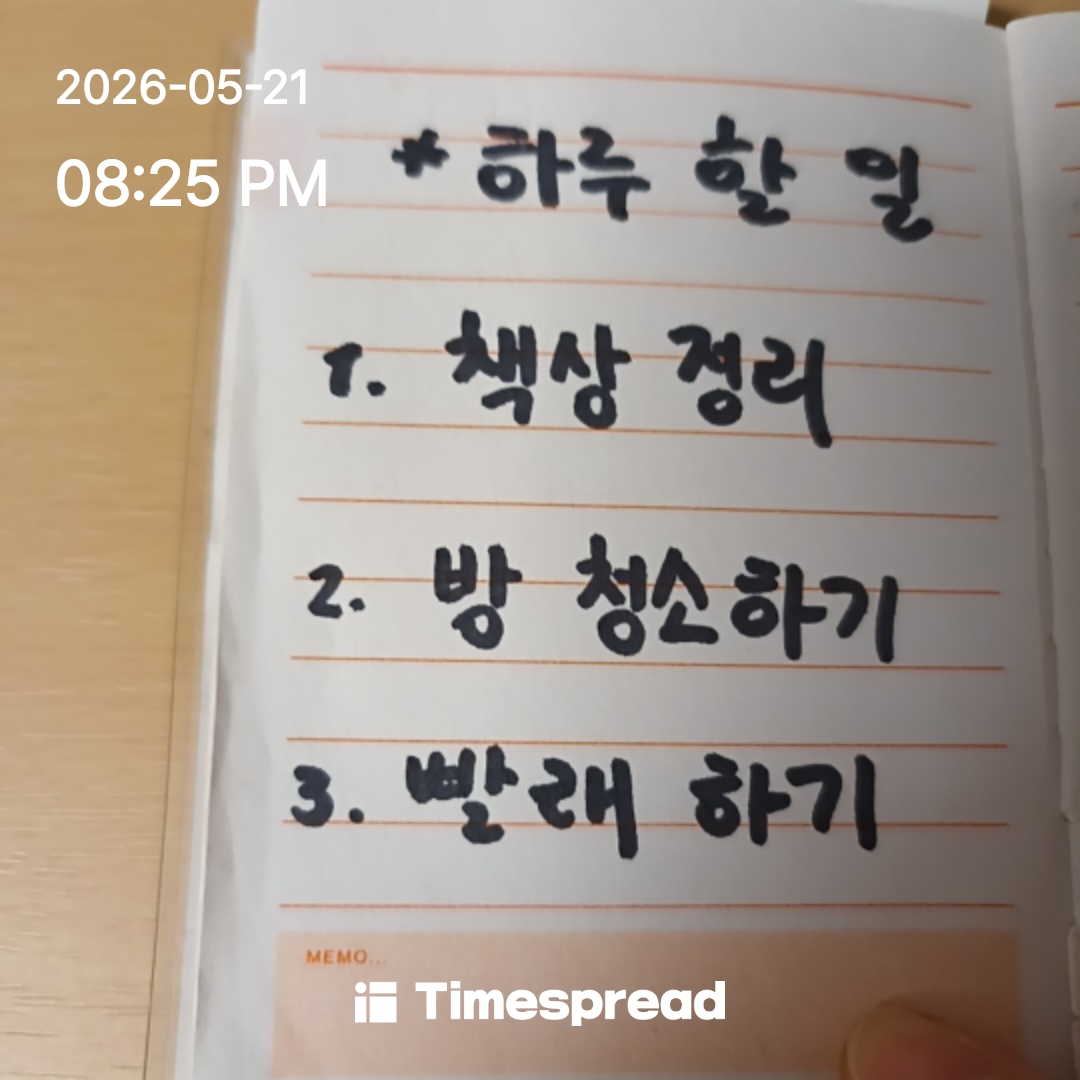 2026-05-21
08:25 PM
* 하루 할 일
1. 책상 정리
2. 방 청소하기
3. 빨래 하기
MEMO...
Timespread